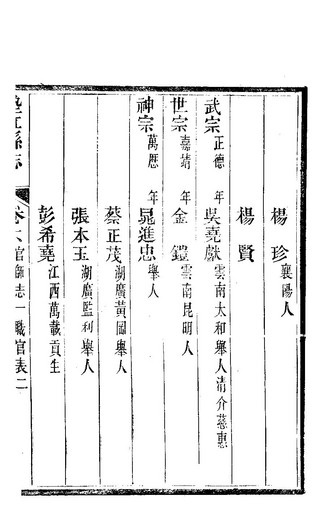 楊珍 襄陽人
楊賢
武宗 正德 年 吳堯獻 雲南太和舉人清介慈惠
世宗 嘉靖 年 金鎧 雲南昆明人
神宗 萬厯 年 晁進忠 舉人
蔡正茂 湖廣黃岡舉人
張本玉 湖廣監利舉人
彭希堯 江西萬載貢生
江縣志 卷六官師志一職官表二